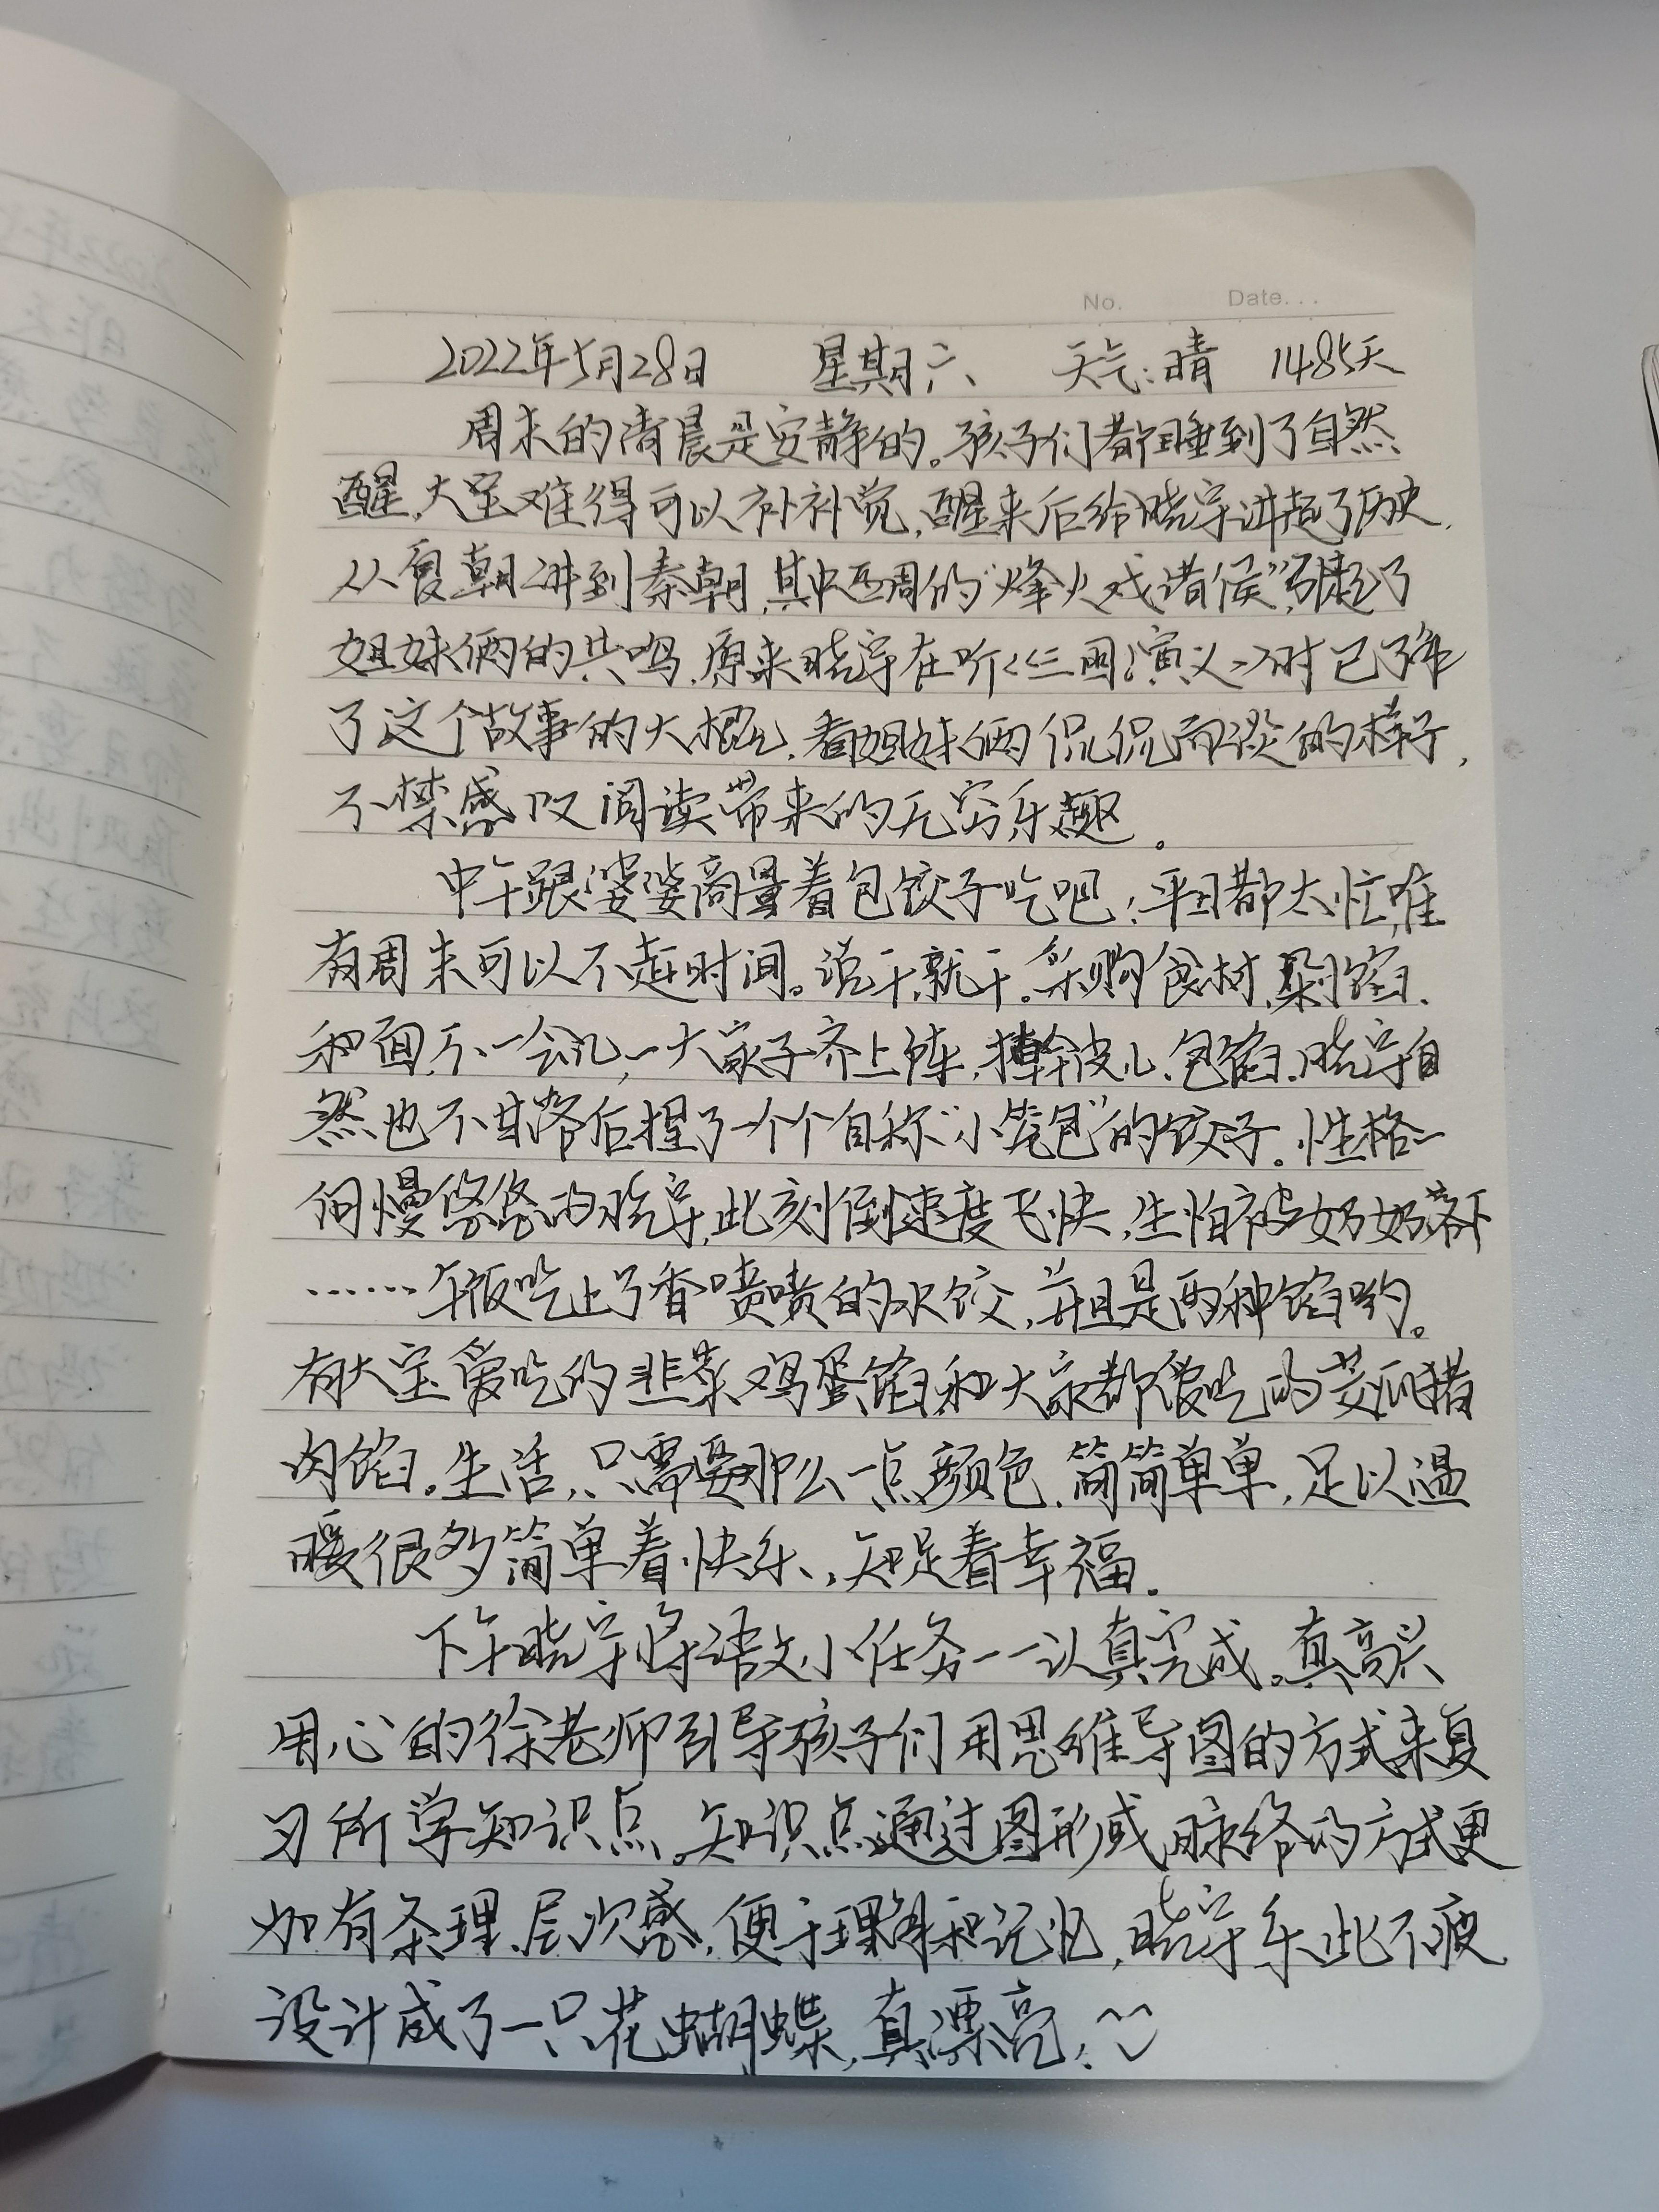 No. Date...
2022年5月28日 星期六 天气:晴 1485天
周末的清晨是安静的。孩子们都睡到了自然
醒,大宝难得可以补补觉,醒来后给晓宇讲起了历史,
从夏朝讲到秦朝,其中西周的“烽火戏诸侯”,引起了
姐妹俩的共鸣,原来晓宇在听<<三国演义>>时已了解
了这个故事的大概,看姐妹俩侃侃而谈的样子,
不禁感叹阅读带来的无穷乐趣。
中午跟婆婆商量着包饺子吃吧!平日都太忙,唯
有周末可以不赶时间。说干就干。采购食材、剁馅、
和面,不一会儿,一大家子齐上阵,擀皮儿、包馅,晓宇自
然也不甘落后捏了一个个自称“小笼包”的饺子。性格一
向慢悠悠的晓宇,此刻倒速度飞快,生怕被奶奶落下
……午饭吃上了香喷喷的水饺,并且是两种馅哟。
有大宝爱吃的韭菜鸡蛋馅和大家都爱吃的黄瓜猪
肉馅。生活,只需要那么一点颜色,简简单单,足以温
暖很多,简单着快乐,知足着幸福。
下午晓宇将语文小任务一一认真完成。真高兴
用心的徐老师引导孩子们用思维导图的方式来复
习所学知识点。知识点通过图形或脉络的方式更
加有条理、层次感,便于理解和记忆,晓宇乐此不疲
设计成了一只花蝴蝶,真漂亮!